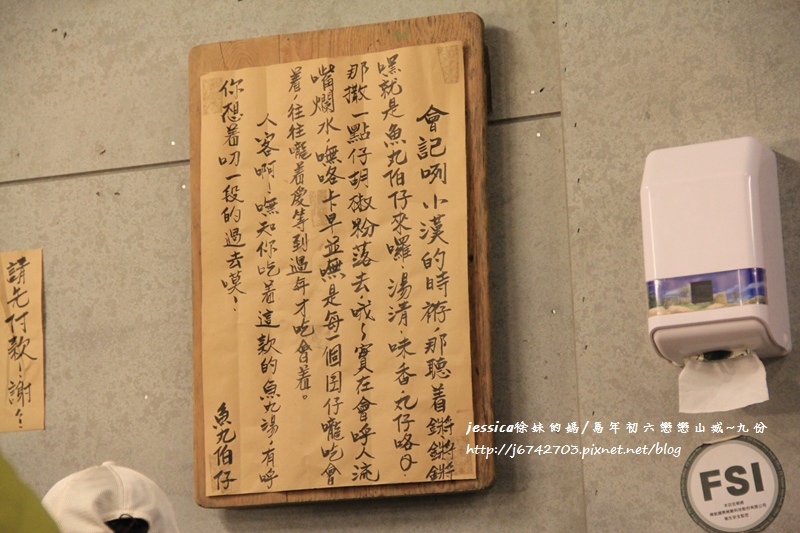 會記咧小漢的時褣,那聽着鏘鏘鏘
嘿就是魚丸伯仔來囉,湯清,味香,丸仔咯Q,
那撒一點仔胡椒粉落去,哦~實在會呼人流
嘴爛水,嘸咯卡早並嘸是每一個囝仔嚨吃會
着,往往嚨着愛等到過年才吃會着。
人客啊!嘸知你吃着這款的魚丸湯,有呼
你想着叨一段的過去嘆!
魚丸伯仔
請先付款!謝!
jessica徐妹的媽/馬年初六戀戀山城~九份
http://j6742703.pixnet.net/blog
FSI